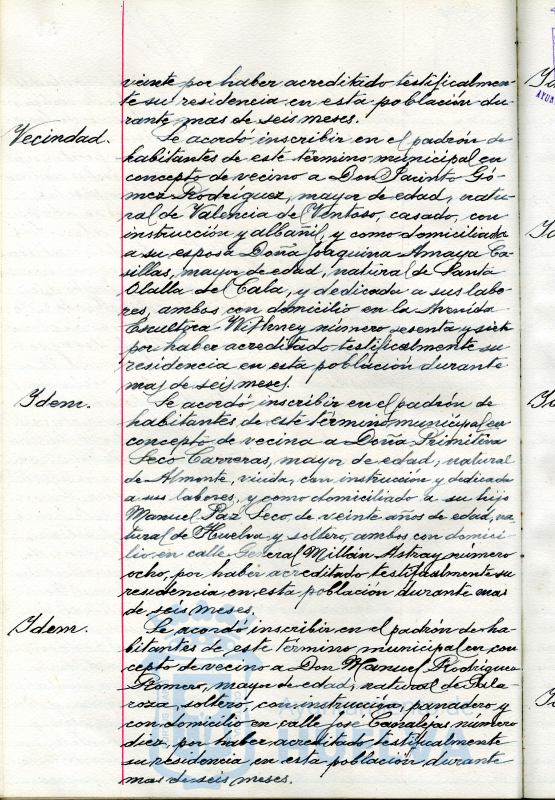 veinte por haber acreditado testificalmen-
te su residencia en esta población du-
rante mas de seis meses.
Vecindad.
Se acordó inscribir en el padrón de
habitantes de este término municipal en
concepto de vecino a Don Jacinto Gó-
mez Rodríguez, mayor de edad, natu-
ral de Valencia del Ventoso, casado, con
instrucción y albañil, y como domiciliada
a su esposa Doña Joaquina Amaya Ca-
sillas, mayor de edad, natural de Santa
Olalla de Cala, y dedicada a sus labo-
res, ambos con domicilio en la Avenida
Escultora Withney número sesenta y siete
por haber acreditado testificalmente su
residencia en esta población durante
mas de seis meses.
Idem.
Se acordó inscribir en el padrón de
habitantes de este término municipal en
concepto de vecina a Doña Primitiva
Seco Carreras, mayor de edad, natural
de Almonte, viuda, con instrucción y dedicada
a sus labores, y como domiciliado a su hijo
Manuel Paz Seco, de veinte años de edad, na-
tural de Huelva y soltero, ambos con domici-
lio en calle General Millán Astray número
ocho, por haber acreditado testificalmente su
residencia en esta población durante mas
de seis meses.
Idem.
Se acordó inscribir en el padrón de ha-
bitantes de este término municipal en con
cepto de vecino a Don Manuel Rodríguez
Romero, mayor de edad, natural de Gala-
roza, soltero, con instrucción, panadero y
con domicilio en calle José Canalejas número
diez, por haber acreditado testificalmente
su residencia en esta población durante
mas de seis meses.